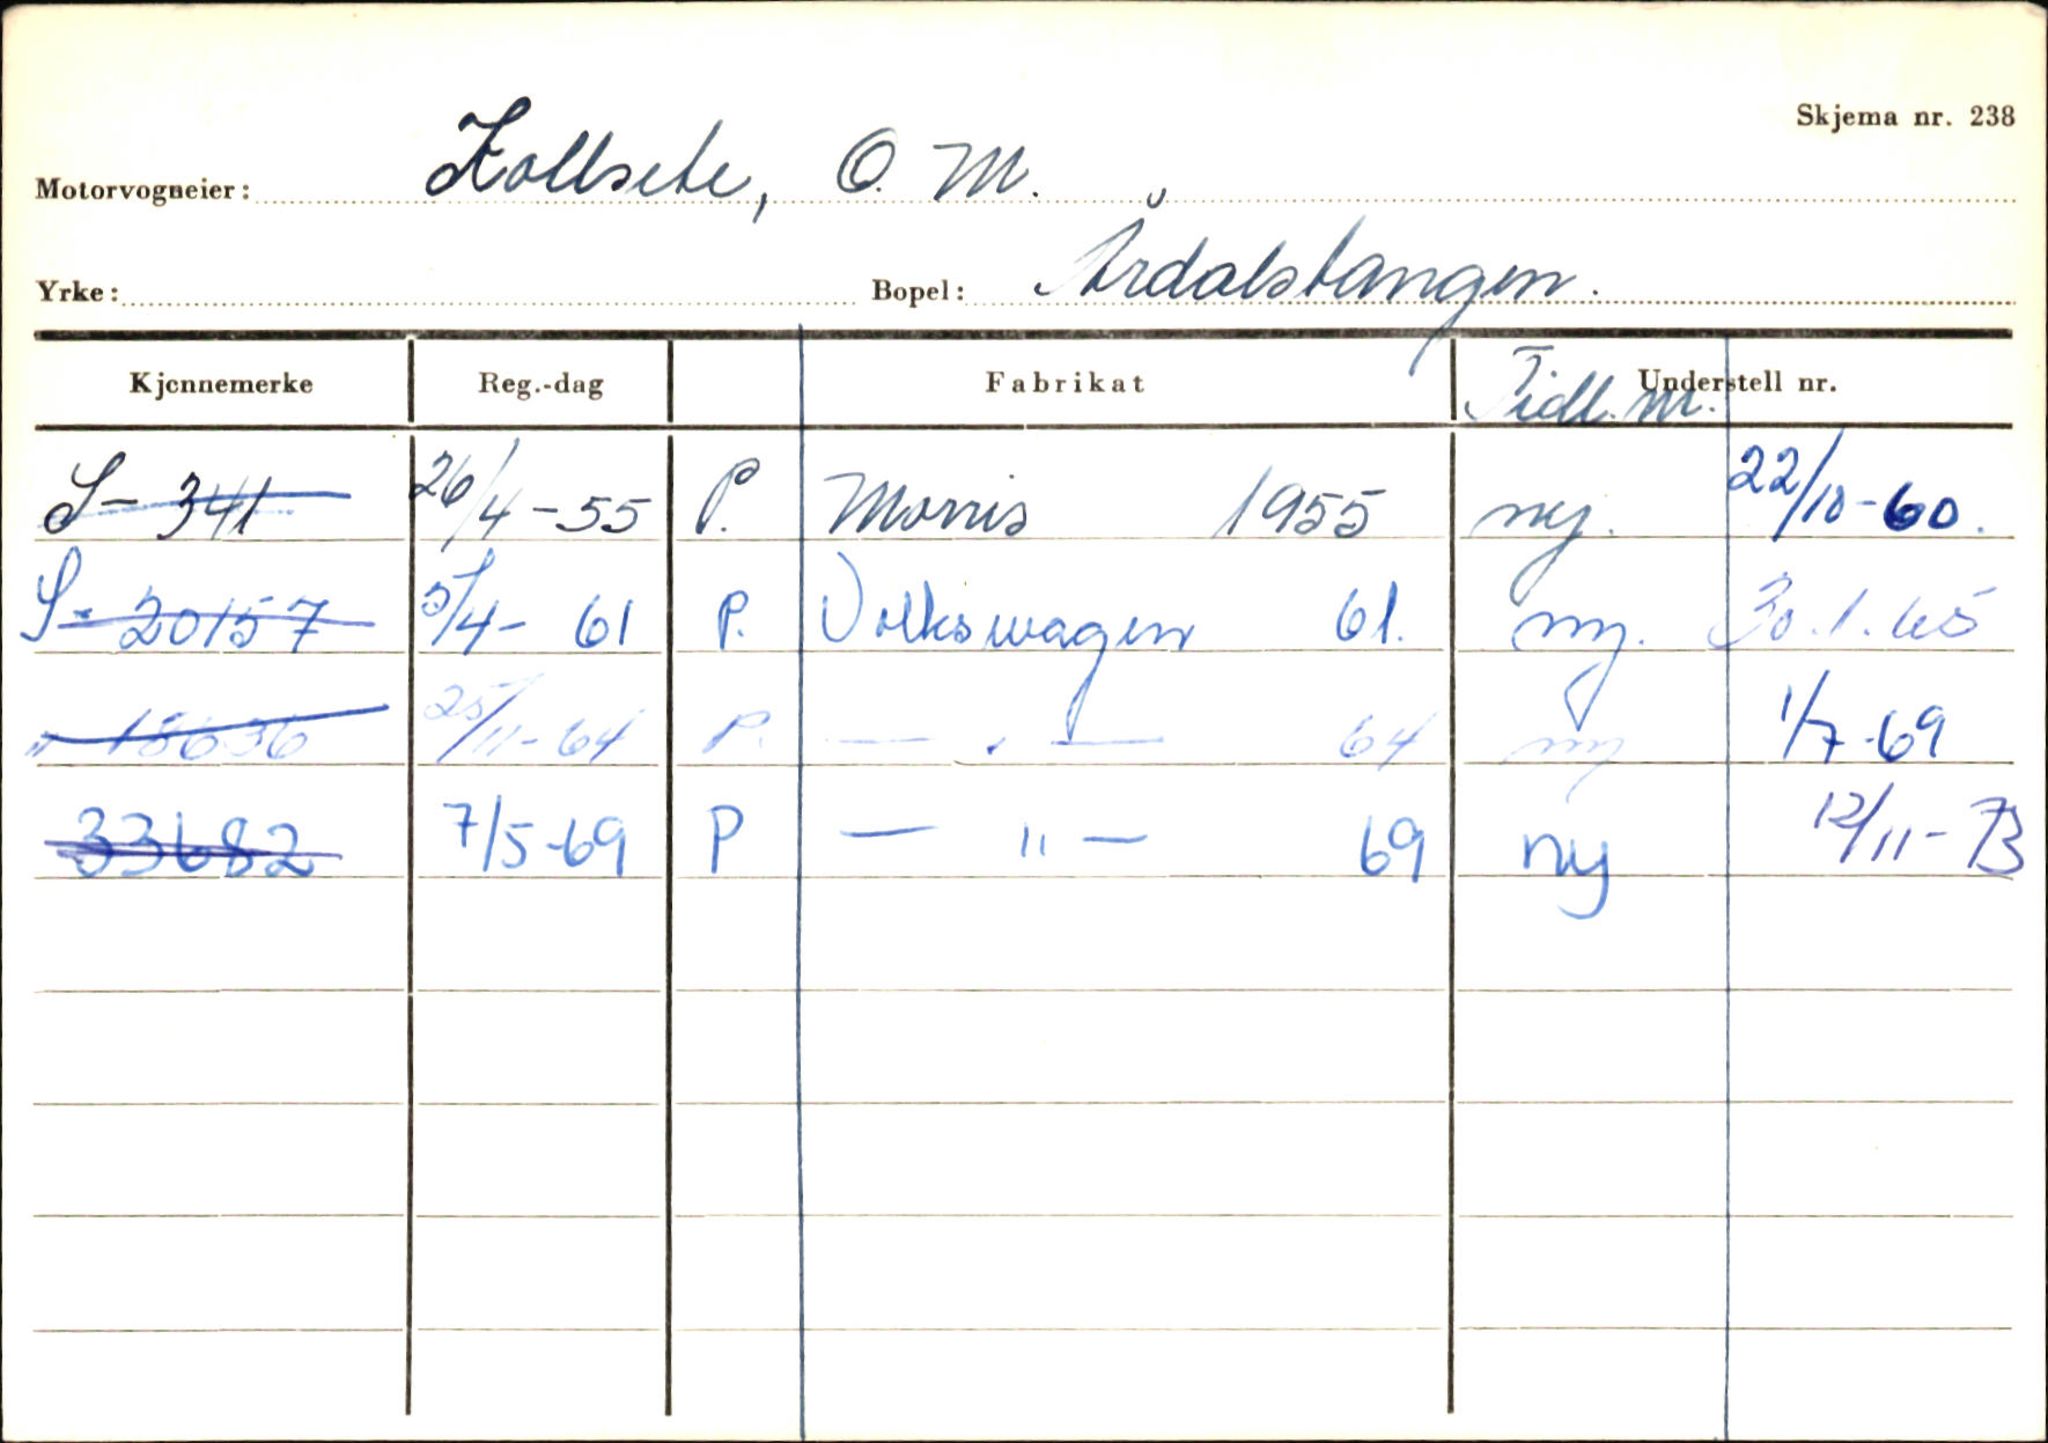 Skjema nr. 238
Motorvogneier: Kollsete, O. M.
Yrke: Bopel: Årdalstangen.
Kjennemerke Reg.-dag Fabrikat Tidl. nr. Understell nr.
S- 341 26/4-55 P. Morris 1955 ny. 22/10-60.
S- 20157 5/4- 61 P. Volkswagen 61. ny. 30.1.65
" 18636 25/11-64 P. — " — 64 ny 1/7-69
33682 7/5-69 P — " — 69 ny 12/11-73